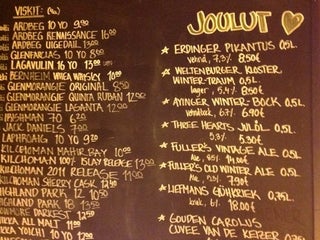 VISKIT:
ARDBEG 10 YO 9.90
ARDBEG RENAISSANCE 16.00
ARDBEG UIGEDAIL 13.00
GLENFARCLAS 10 YO 8.00
LAGAVULIN 16 YO 13.00
BERNHEIM WHEA WHISKY 10.00
GLENMORANGIE ORIGINAL 8.50
GLENMORANGIE QUINTA RUBAN 12.00
GLENMORANGIE LASANTA 12.00
BUSHMAN 70 6.20
JACK DANIELS 7.00
LAPHROAIG 10 YO
KILCHOMAN MAHIR BAY 10.00
KILCHOMAN 100% ISLAY RELEASE 13.00
KILCHOMAN 2011 RELEASE 11.00
KILCHOMAN SHERRY CASK 12.50
HIGHLAND PARK 12 10.50
HIGHLAND PARK 18 13.50
DARKEST 12.50
NIKKA ALL MALT 11.00
NIKKA YOICHI 10 YO 12.00
JOULUT
* ERDINGER PIKANTUS 0,5L
vehnä, 7.3% 8.50€
* WELTENBURGER KLOSTER
WINTER-TRAUM 0,5L
lager, 5.4% 8.50€
* AYINGER WINTER-BOCK 0,5L
6.7% 6.90€
* THREE HEARTS JULÖL 0.5L
5.3% 5.30€
* FULLER'S VINTAGE ALE 0.5L
Ale, 8.5% 14.00€
* FULLER'S OLD WINTER ALE 0.5L
Ale, 7.90€
* LIEFMANS GLÜHKRIEK 0,75L
kriek, 6% 18.00€
* GOUDEN CAROLUS
CUVEE VAN DE KEIZER